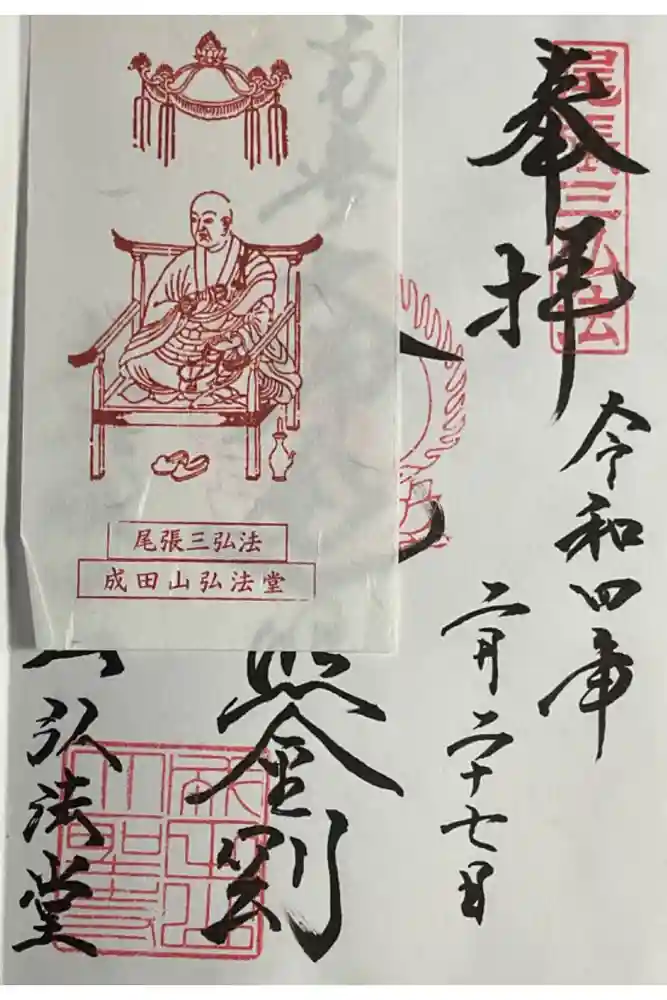 奉拝
尾張三弘法
令和四年
二月二十七日
照金剛
弘法堂
尾張三弘法
成田山弘法堂